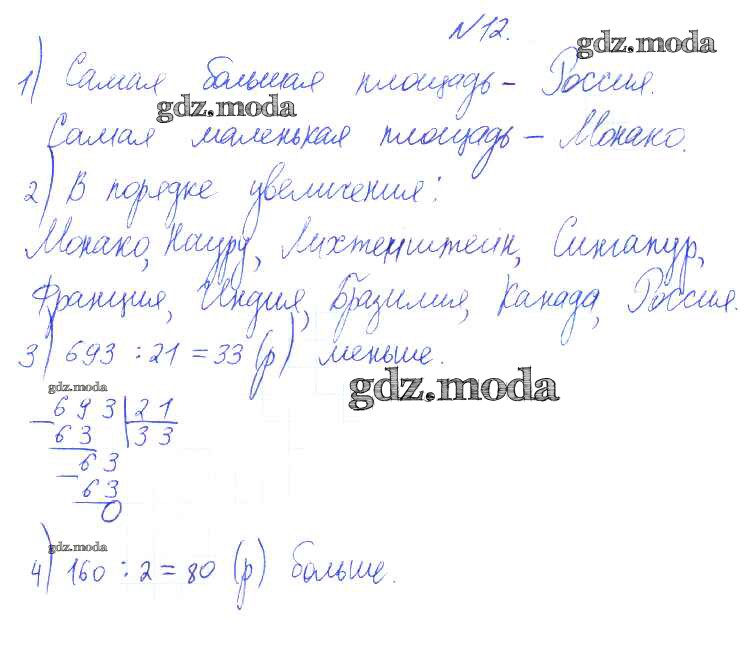 №12.
gdz.moda
1) Самая большая площадь – Россия.
gdz.moda
Самая маленькая площадь – Монако.
2) В порядке увеличения:
Монако, Науру, Лихтенштейн, Сингапур,
Франция, Индия, Бразилия, Канада, Россия.
3) 693 : 21 = 33 (р) меньше.
gdz.moda
gdz.moda
693 21
63 33
63
63
0
gdz.moda
4) 160 : 2 = 80 (р) больше.